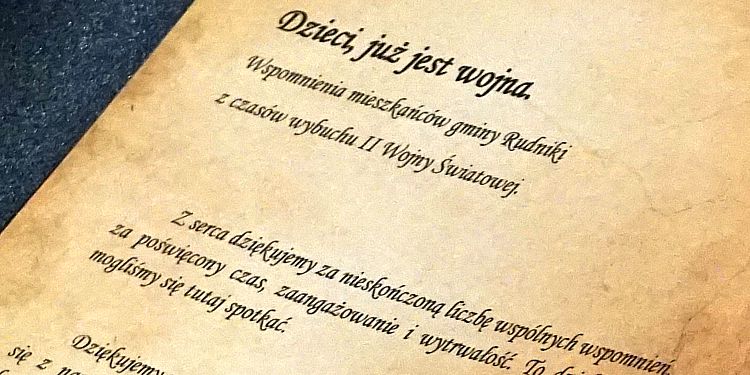 Dzieci, już jest wojna.
Wspomnienia mieszkańców gminy Rudniki
z czasów wybuchu II Wojny Światowej.
Z serca dziękujemy za nieskończoną liczbę wspólnych wspomnień,
za poświęcony czas, zaangażowanie i wytrwałość. To
mogliśmy się tutaj spotkać.
Dziękujemy
się z